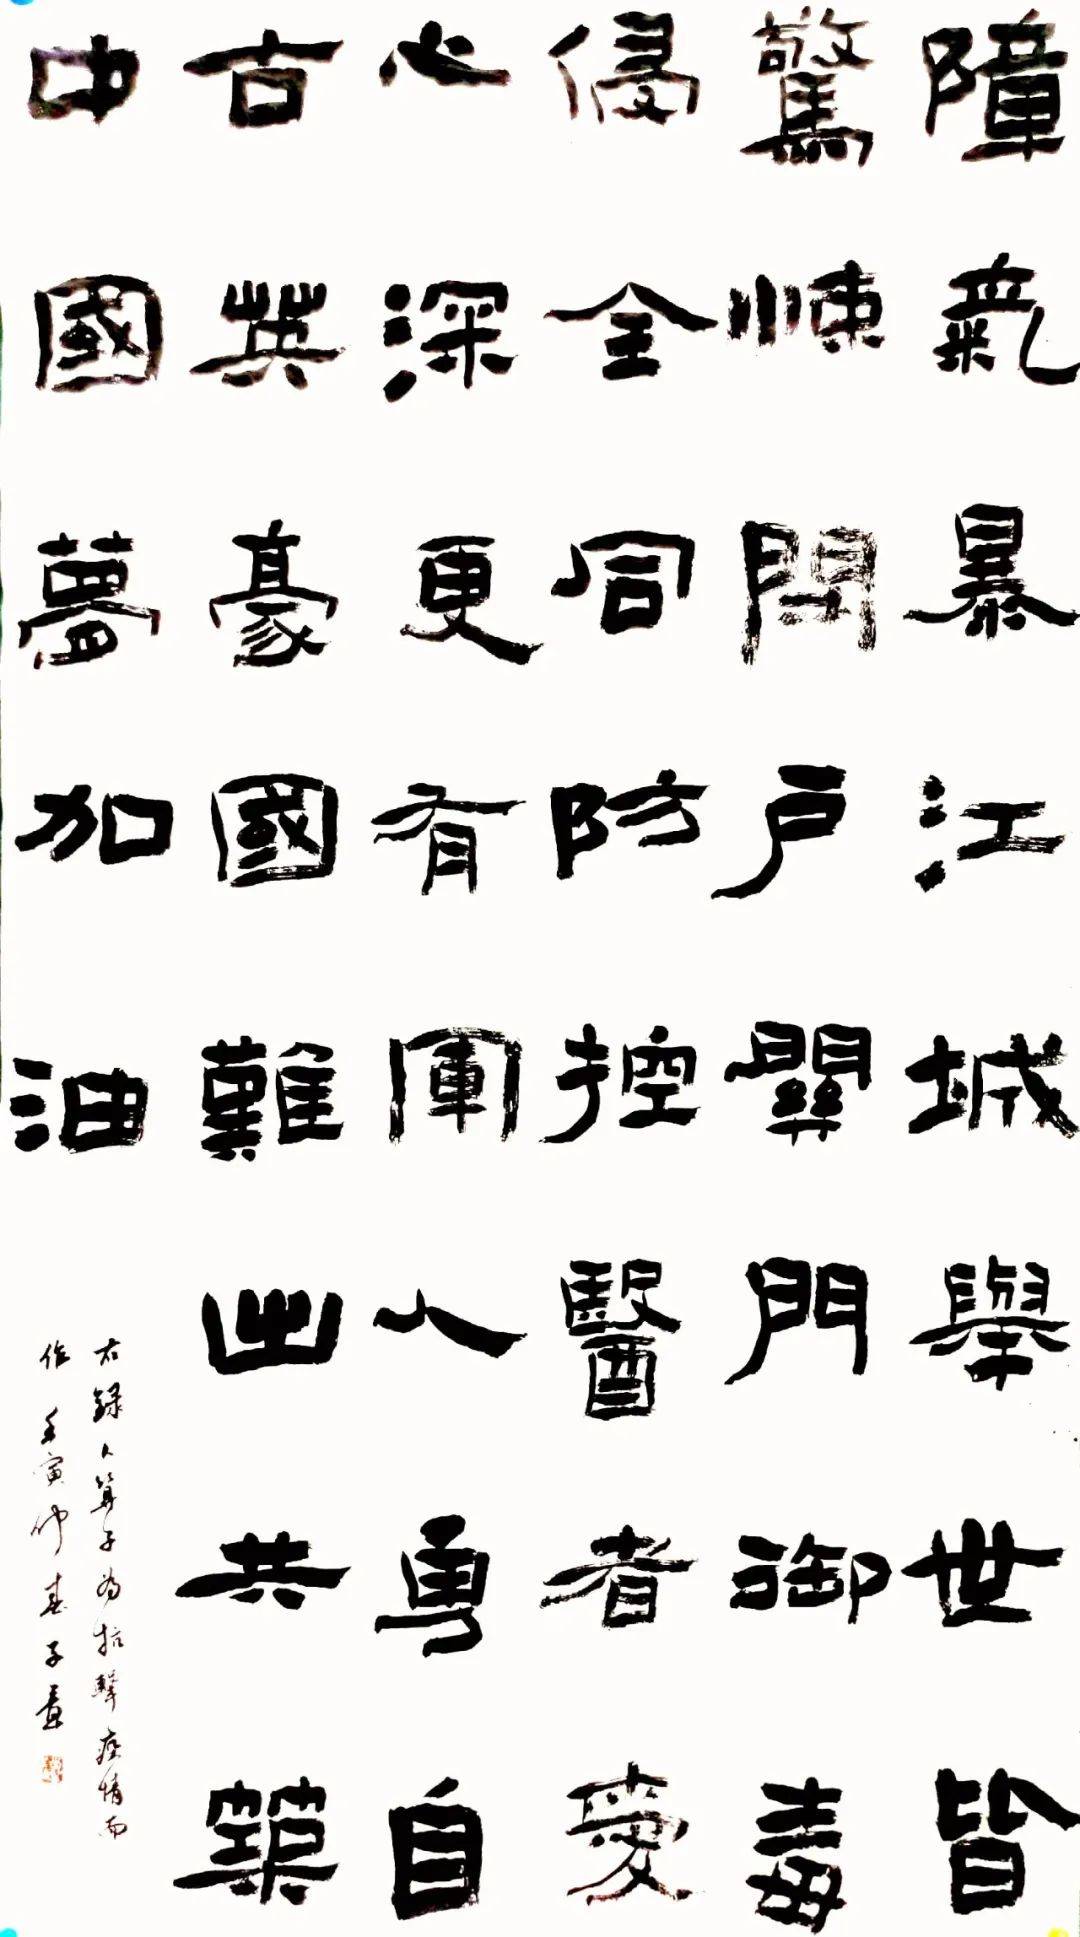 障氣暴江城舉世皆
驚悚閉户關門御毒
侵全同防控醫者愛
心深更有軍人勇自
古英豪國難出共築
中國夢加油
右録卜算子为抗擊疫情而
作 壬寅仲春子